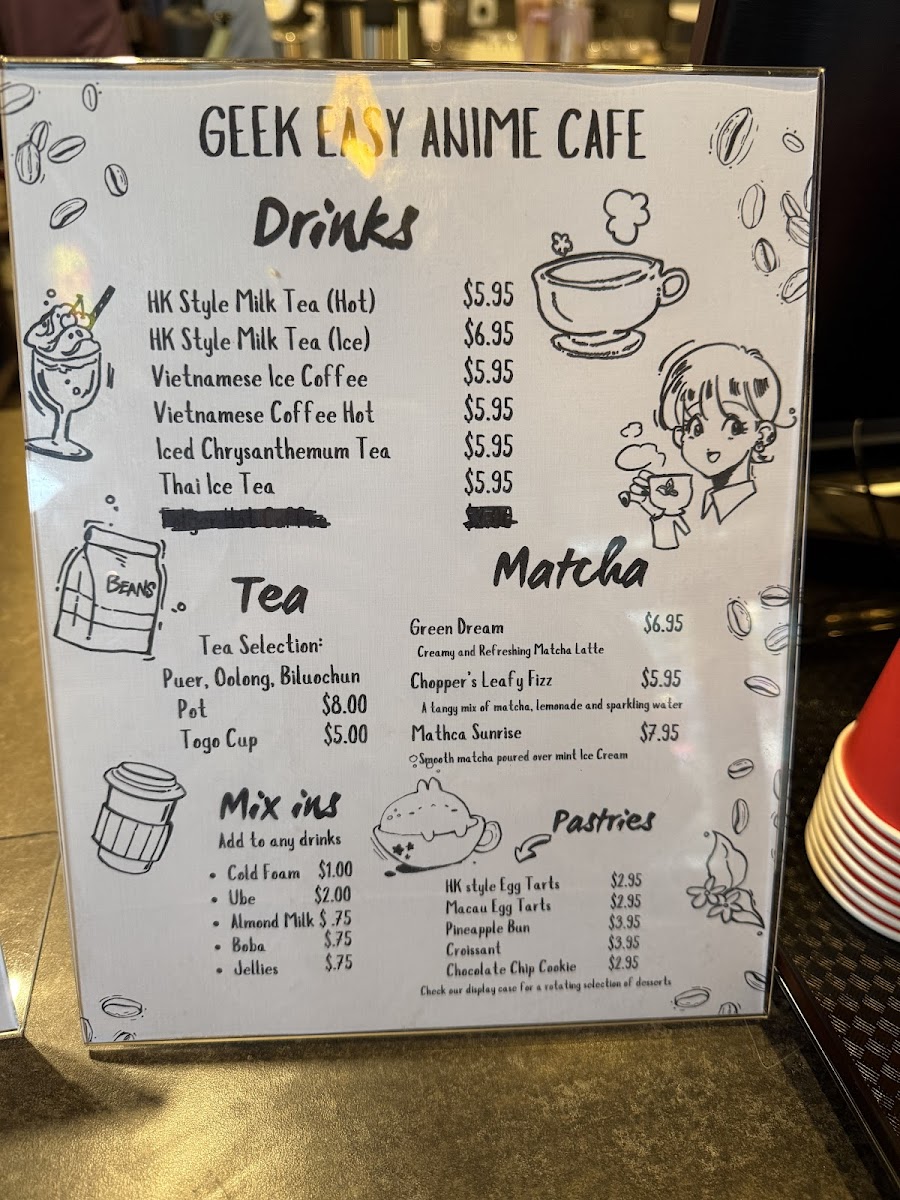 GEEK EASY ANIME CAFE
Drinks
HK Style Milk Tea (Hot) $5.95
HK Style Milk Tea (Ice) $6.95
Vietnamese Ice Coffee $5.95
Vietnamese Coffee Hot $5.95
Iced Chrysanthemum Tea $5.95
Thai Ice Tea $5.95
BEANS
Tea
Tea Selection:
Puer, Oolong, Biluochun
Pot $8.00
Togo Cup $5.00
Matcha
Green Dream $6.95
Creamy and Refreshing Matcha Latte
Chopper's Leafy Fizz $5.95
A tangy mix of matcha, lemonade and sparkling water
Mathca Sunrise $7.95
Smooth matcha poured over mint Ice Cream
Mix ins
Add to any drinks
• Cold Foam $1.00
• Ube $2.00
• Almond Milk $.75
• Boba $.75
• Jellies $.75
Pastries
HK style Egg Tarts $2.95
Macau Egg Tarts $2.95
Pineapple Bun $3.95
Croissant $3.95
Chocolate Chip Cookie $2.95
Check our display case for a rotating selection of desserts